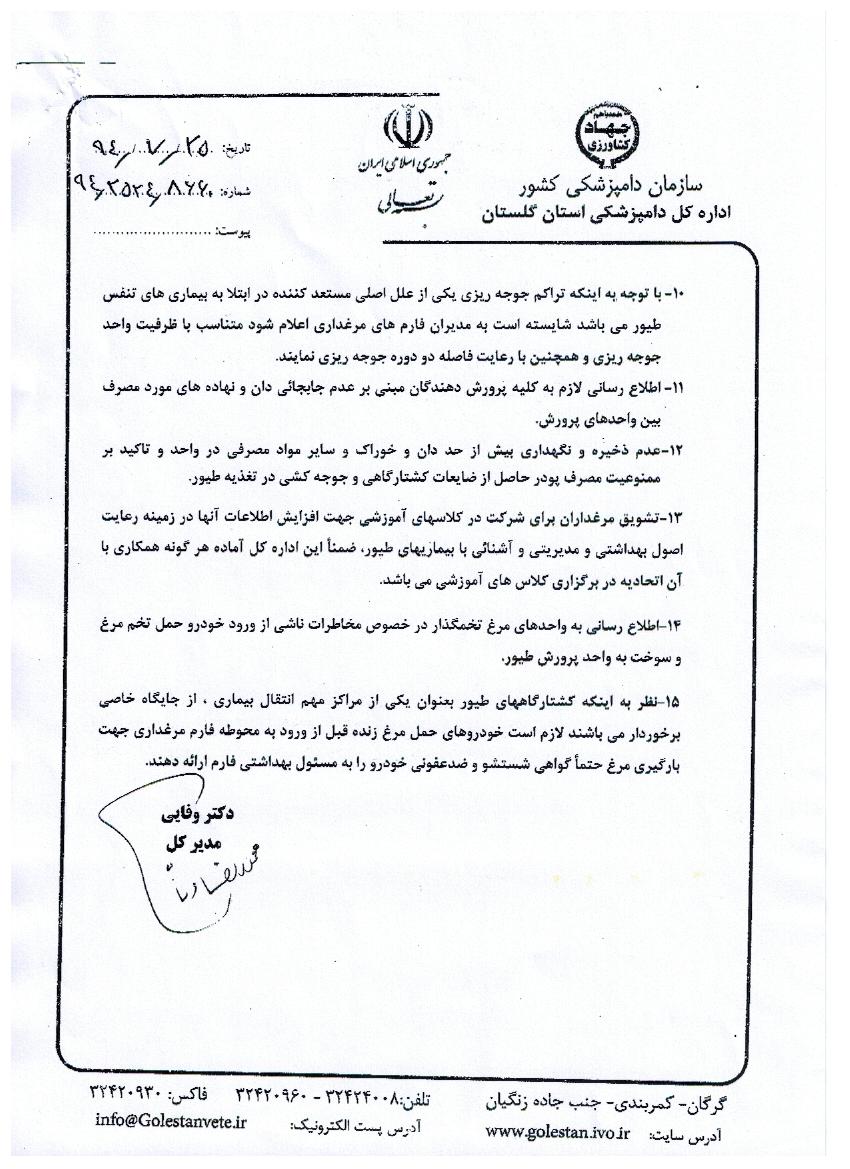 جهاد
کشاورزی
سازمان دامپزشکی کشور
اداره کل دامپزشکی استان گلستان
جمهوری اسلامی ایران
بسمه تعالی
تاریخ: ۹۴/۷/۲۵
شماره:
پیوست: ........................
۱۰- با توجه به اینکه تراکم جوجه ریزی یکی از علل اصلی مستعد کننده در ابتلا به بیماری های تنفس
طیور می باشد شایسته است به مدیران فارم های مرغداری اعلام شود متناسب با ظرفیت واحد
جوجه ریزی و همچنین با رعایت فاصله دو دوره جوجه ریزی نمایند.
۱۱- اطلاع رسانی لازم به کلیه پرورش دهندگان مبنی بر عدم جابجائی دان و نهاده های مورد مصرف
بین واحدهای پرورش.
۱۲-عدم ذخیره و نگهداری بیش از حد دان و خوراک و سایر مواد مصرفی در واحد و تاکید بر
ممنوعیت مصرف پودر حاصل از ضایعات کشتارگاهی و جوجه کشی در تغذیه طیور.
۱۳-تشویق مرغداران برای شرکت در کلاسهای آموزشی جهت افزایش اطلاعات آنها در زمینه رعایت
اصول بهداشتی و مدیریتی و آشنائی با بیماریهای طیور، ضمناً این اداره کل آماده هر گونه همکاری با
آن اتحادیه در برگزاری کلاس های آموزشی می باشد.
۱۴-اطلاع رسانی به واحدهای مرغ تخمگذار در خصوص مخاطرات ناشی از ورود خودرو حمل تخم مرغ
و سوخت به واحد پرورش طیور.
۱۵-نظر به اینکه کشتارگاههای طیور بعنوان یکی از مراکز مهم انتقال بیماری ، از جایگاه خاصی
برخوردار می باشند لازم است خودروهای حمل مرغ زنده قبل از ورود به محوطه فارم مرغداری جهت
بارگیری مرغ حتماً گواهی شستشو و ضدعفونی خودرو را به مسئول بهداشتی فارم ارائه دهند.
دکتر وفایی
مدیر کل
گرگان- کمربندی- جنب جاده زنگیان تلفن:۳۲۴۲۴۰۰۸ - ۳۲۴۲۰۹۶۰ فاکس: ۳۲۴۲۰۹۳۰
آدرس سایت: www.golestan.ivo.ir آدرس پست الکترونیک: info@Golestanvete.ir